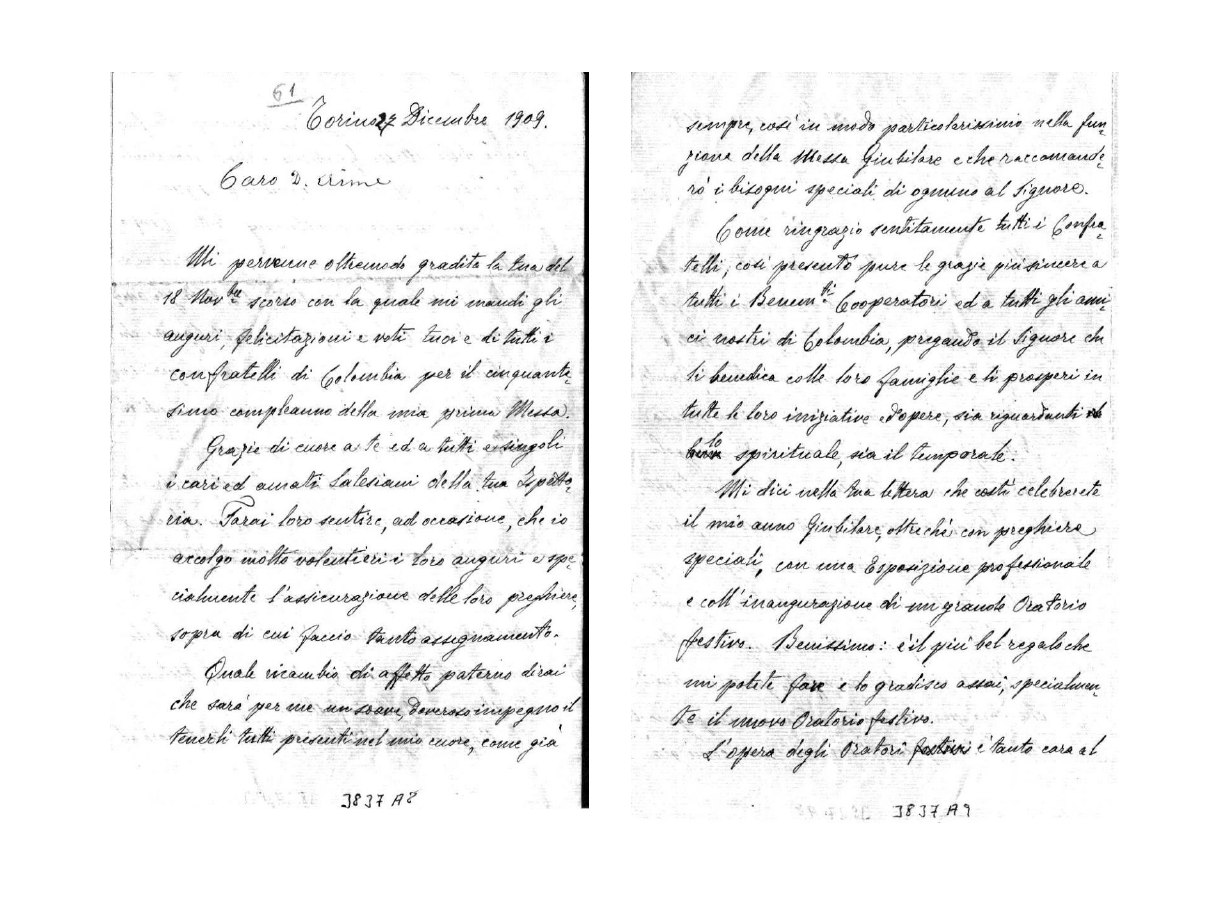 61
Torino 27 Dicembre 1909.
Caro D. Aime
Mi pervenne oltremodo gradita la tua del
18 Nov.bre scorso con la quale mi mandi gli
auguri, felicitazioni e voti tuoi e di tutti i
confratelli di Colombia per il cinquante-
simo compleanno della mia prima Messa.
Grazie di cuore a te ed a tutti e singoli
i cari ed amati Salesiani della tua Ispetto-
ria. Farai loro sentire, ad occasione, che io
accolgo molto volentieri i loro auguri e spe-
cialmente l'assicurazione delle loro preghiere,
sopra di cui faccio tanto assegnamento.
Quale ricambio di affetto paterno dirai
che sarà per me un soave, doveroso impegno il
tenerli tutti presenti nel mio cuore, come già
3837 A8
sempre, così in modo particolarissimo nella fun-
zione della Messa Giubilare e che raccomande-
rò i bisogni speciali di ognuno al Signore.
Come ringrazio sentitamente tutti i Confra-
telli, così presento pure le grazie più sincere a
tutti i Benem.ti Cooperatori ed a tutti gli ami-
ci nostri di Colombia, pregando il Signore che
li benedica colle loro famiglie e li prosperi in
tutte le loro iniziative ed opere, sia riguardanti
lo spirituale, sia il temporale.
Mi dici nella tua lettera che costì celebrerete
il mio anno Giubilare, oltrechè con preghiere
speciali, con una Esposizione professionale
e coll'inaugurazione di un grande Oratorio
festivo. Benissimo: è il più bel regalo che
mi potete fare e lo gradisco assai, specialmen-
te il nuovo Oratorio festivo.
L'opera degli Oratori festivi è tanto cara al
3837 A9